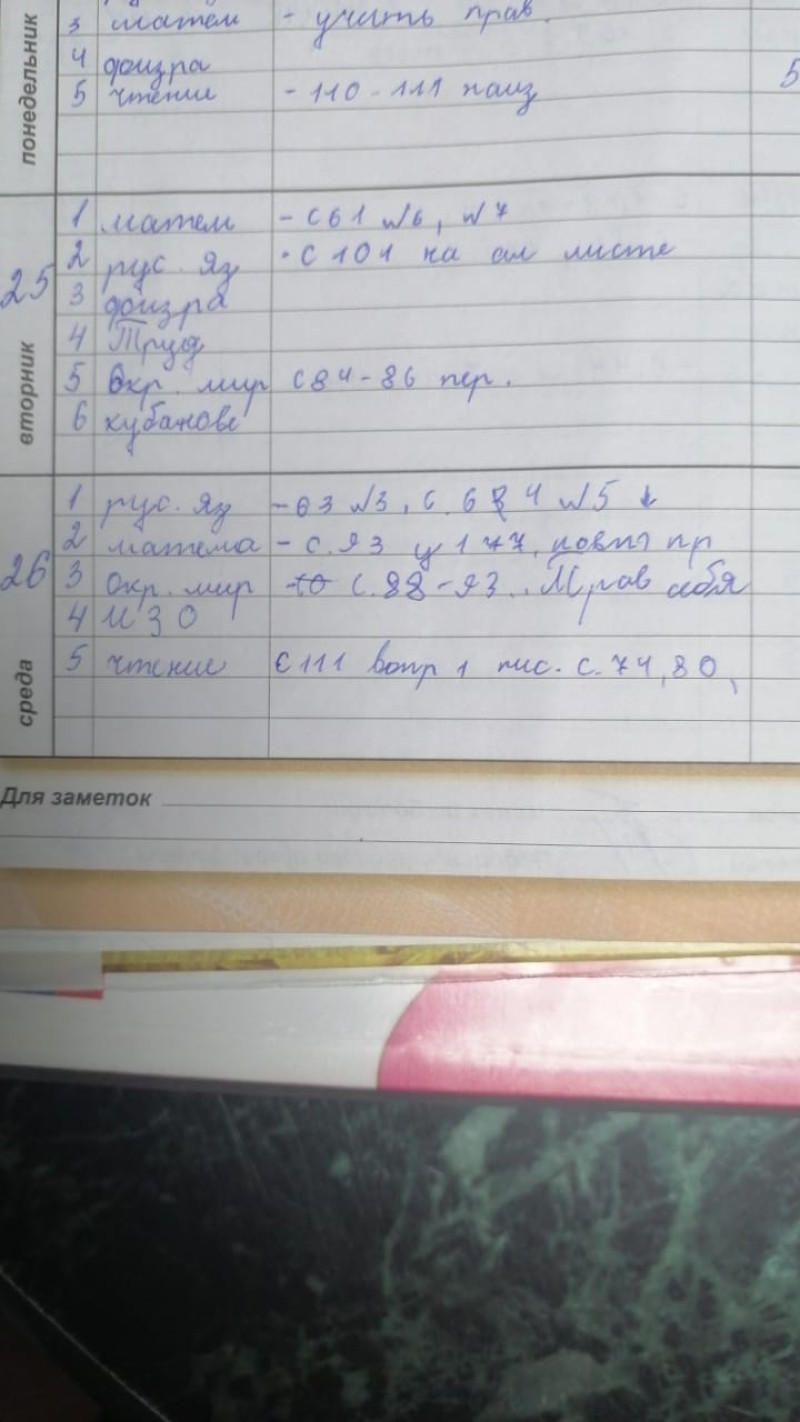 понедельник
3 матем - учить прав.
4 физра
5 чтение - 110-111 наиз 5
25 вторник
1 матем - с 61 №6, №7
2 рус. яз - с 101 на ал листе
3 физра
4 Труд
5 Окр. мир с 84-86 пер.
6 кубанове
26 среда
1 рус. яз - 63 №3, с. 64 №5
2 матема - с. 93 у 177, повт пр
3 Окр. мир с. 88-93.
4 ИЗО
5 чтение с 111 вопр 1 пис. с. 74, 80,
Для заметок